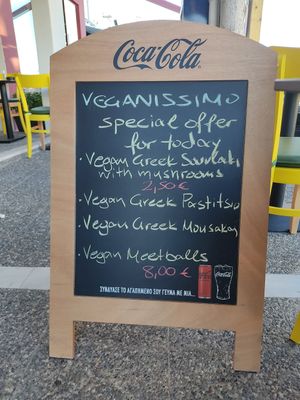 Coca-Cola
VEGANISSIMO
special offer
for today
• Vegan Greek Souvlaki
with mushrooms
2,50 €
• Vegan Greek Pastitsio
• Vegan Greek Mousakas
• Vegan Meetballs
8,00 €
ΣΥΝΔΥΑΣΕ ΤΟ ΑΓΑΠΗΜΕΝΟ ΣΟΥ ΓΕΥΜΑ ΜΕ ΜΙΑ...
Coca-Cola